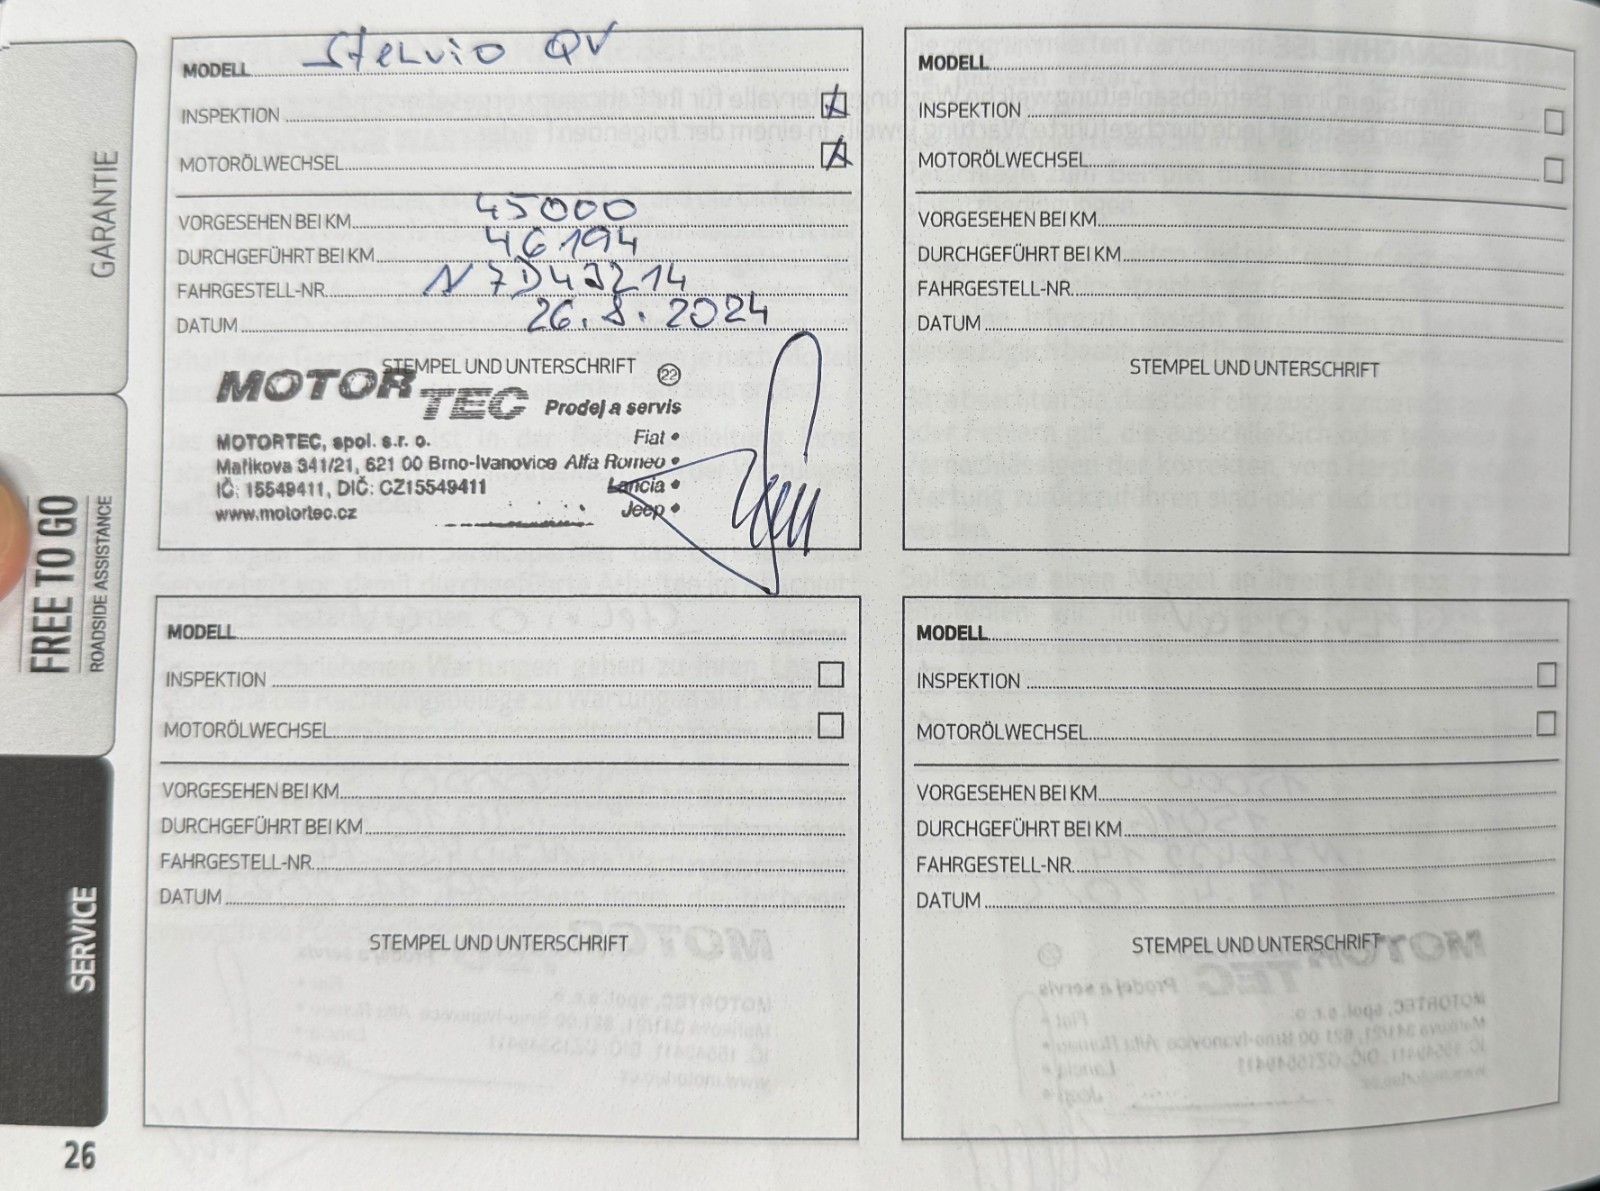 GARANTIE
FREE TO GO
ROADSIDE ASSISTANCE
SERVICE
MODELL Stelvio QV
INSPEKTION
MOTORÖLWECHSEL
VORGESEHEN BEI KM 45000
DURCHGEFÜHRT BEI KM 46194
FAHRGESTELL-NR.
DATUM 26.8.2024
STEMPEL UND UNTERSCHRIFT
22
MOTOR TEC Prodej a servis
MOTORTEC, spol. s.r. o. Fiat •
Maříkova 341/21, 621 00 Brno-Ivanovice Alfa Romeo •
IČ: 15549411, DIČ: CZ15549411 Lancia •
www.motortec.cz Jeep •
MODELL
INSPEKTION
MOTORÖLWECHSEL
VORGESEHEN BEI KM
DURCHGEFÜHRT BEI KM
FAHRGESTELL-NR.
DATUM
STEMPEL UND UNTERSCHRIFT
MODELL
INSPEKTION
MOTORÖLWECHSEL
VORGESEHEN BEI KM
DURCHGEFÜHRT BEI KM
FAHRGESTELL-NR.
DATUM
STEMPEL UND UNTERSCHRIFT
MODELL
INSPEKTION
MOTORÖLWECHSEL
VORGESEHEN BEI KM
DURCHGEFÜHRT BEI KM
FAHRGESTELL-NR.
DATUM
STEMPEL UND UNTERSCHRIFT
26